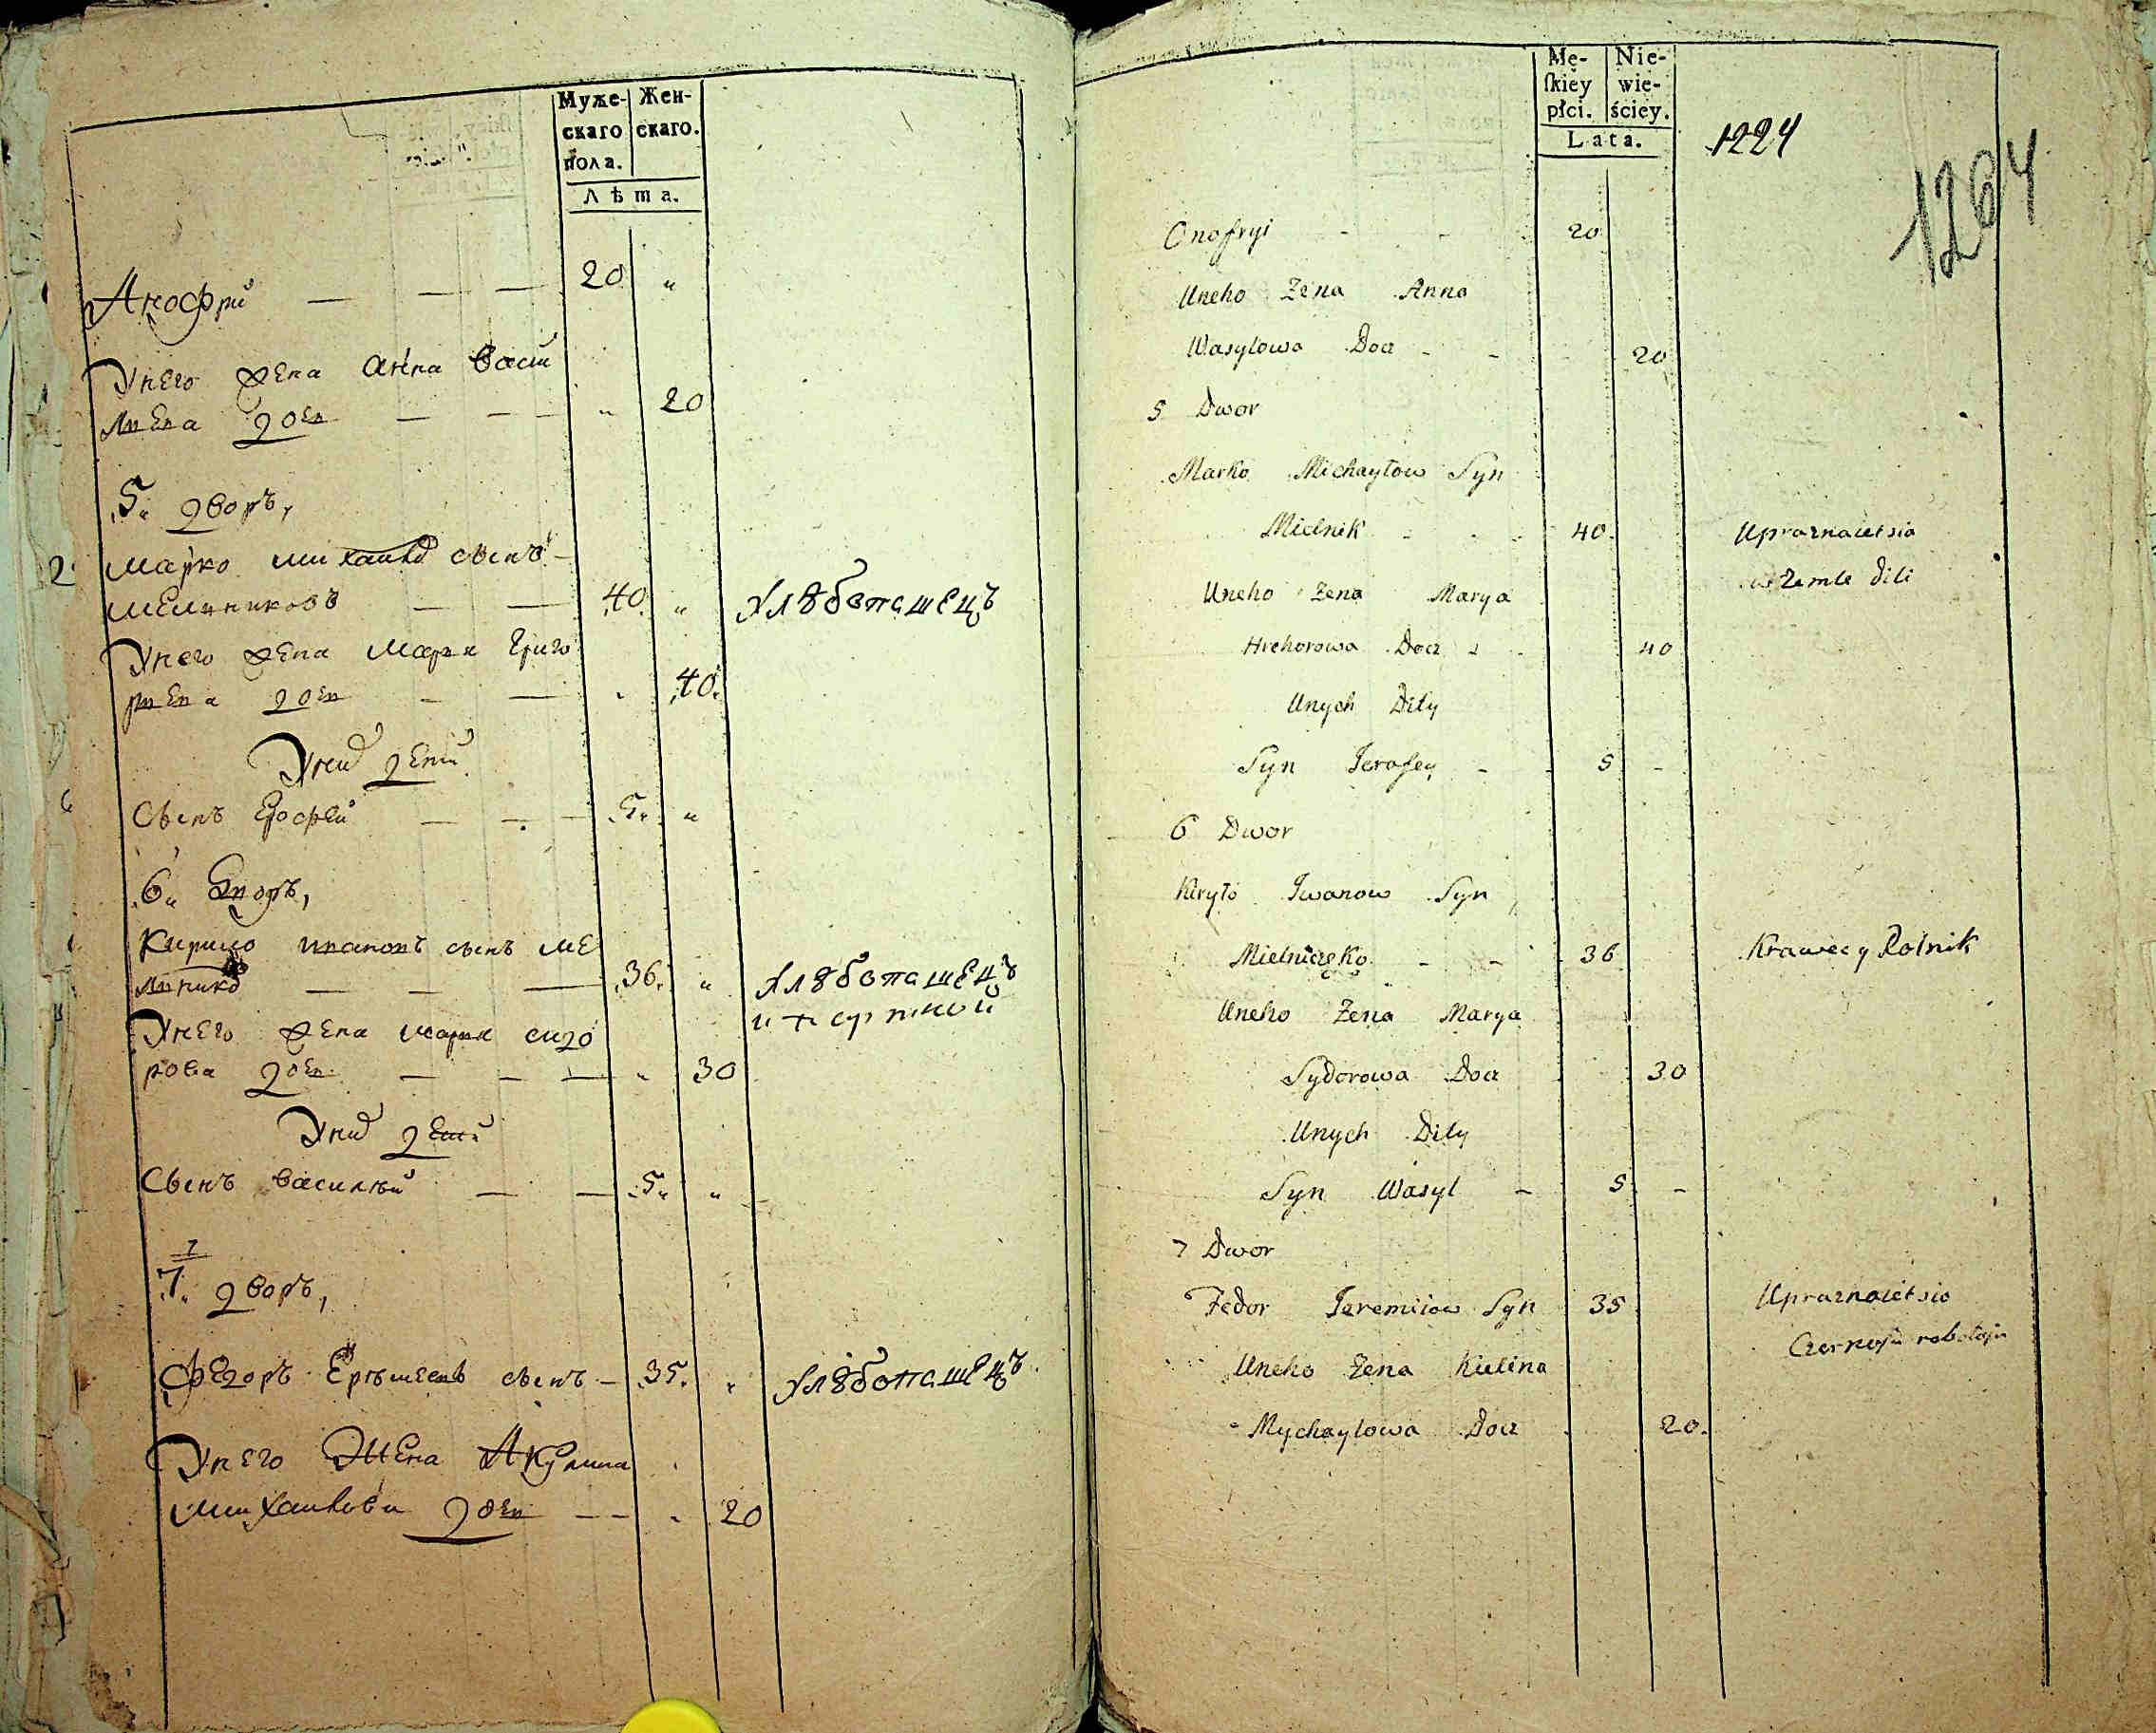 Муже-
скаго
пола.
Жен-
скаго.
Лѣта.
Анофри — — — 20 "
У него жена Анна Васи
лиева доч — — — " 20
5" дворъ,
2
Марко Михайлов сынъ —
Мелниковъ — — 40. " хлѣбопашецъ
У него жена Маря Григо
риева доч — — " 40.
У них дети
Сынъ Ерофей — — — 5" "
6" дворъ,
Кирило Ивановъ сынъ Ме
лников — — — 36. " хлѣбопашецъ
и портной
У него жена Маря Сидо
рова доч — — — " 30
У них дети
Сынъ Василѣй — — 5" "
7
7" дворъ,
Федоръ Ерѣмеевъ сынъ — 35. " хлѣбопашецъ
У него жена Акулина
Михайлова доч — — " 20
Mę-
skiey
płci.
Nie-
wie-
ściey.
Lata.
1224
1264
Onofryi - - 20
Uneho Zena Anna
Wasylowa Docz - - 20
5 Dwor
Marko Michayłow Syn
Mielnik - - 40. Uprażnaietsia
w Zemle dili
Uneho Zena Marya
Hrehorowa Docz - - 40
Unych Dity
Syn Jerofey - - 5 -
6 Dwor
Kiryło Iwanow Syn
Mielniczęko - - 36 Krawiec y Rolnik
Uneho Zena Marya
Sydorowa Docz 30
Unych Dity
Syn Wasyl - 5 -
7 Dwor
Fedor Jeremiiow Syn 35 Uprażnaietsia
Czernoju robotoju
Uneho Zena Kulina
Mychaylowa Docz 20.